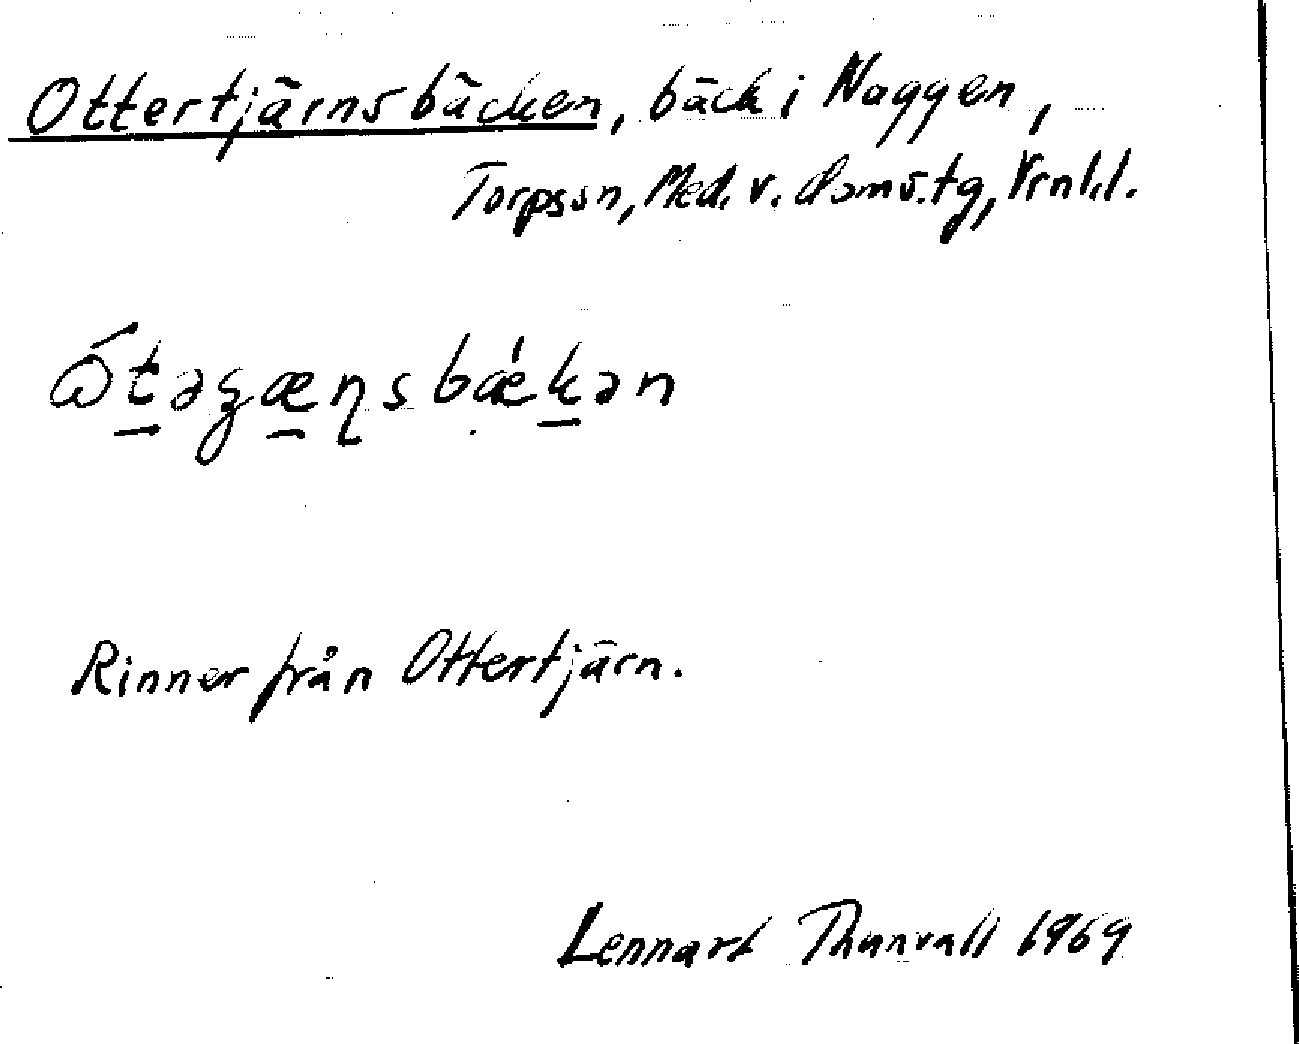 Ottertjärnsbäcken, bäck i Naggen,
Torpssn, Med. v. doms.tg, Vrnl.l.
Rinner från Ottertjärn.
Lennart Thunvall 1969